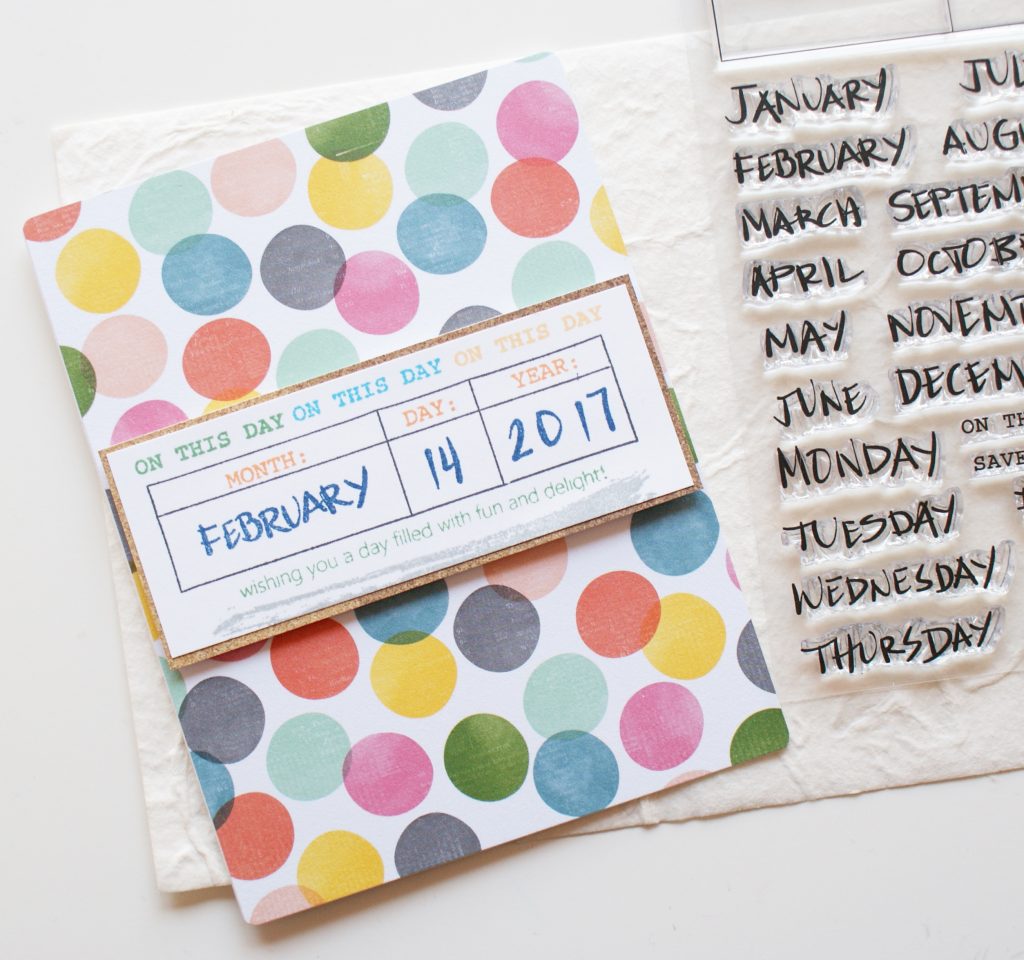 ON THIS DAY ON THIS DAY ON THIS DAY
MONTH: DAY: YEAR:
FEBRUARY 14 2017
wishing you a day filled with fun and delight!
JANUARY
FEBRUARY
MARCH
APRIL
MAY
JUNE
MONDAY
TUESDAY
WEDNESDAY
THURSDAY
JUL
AUGU
SEPTEM
OCTOB
NOVEM
DECEM
ON TH
SAVE